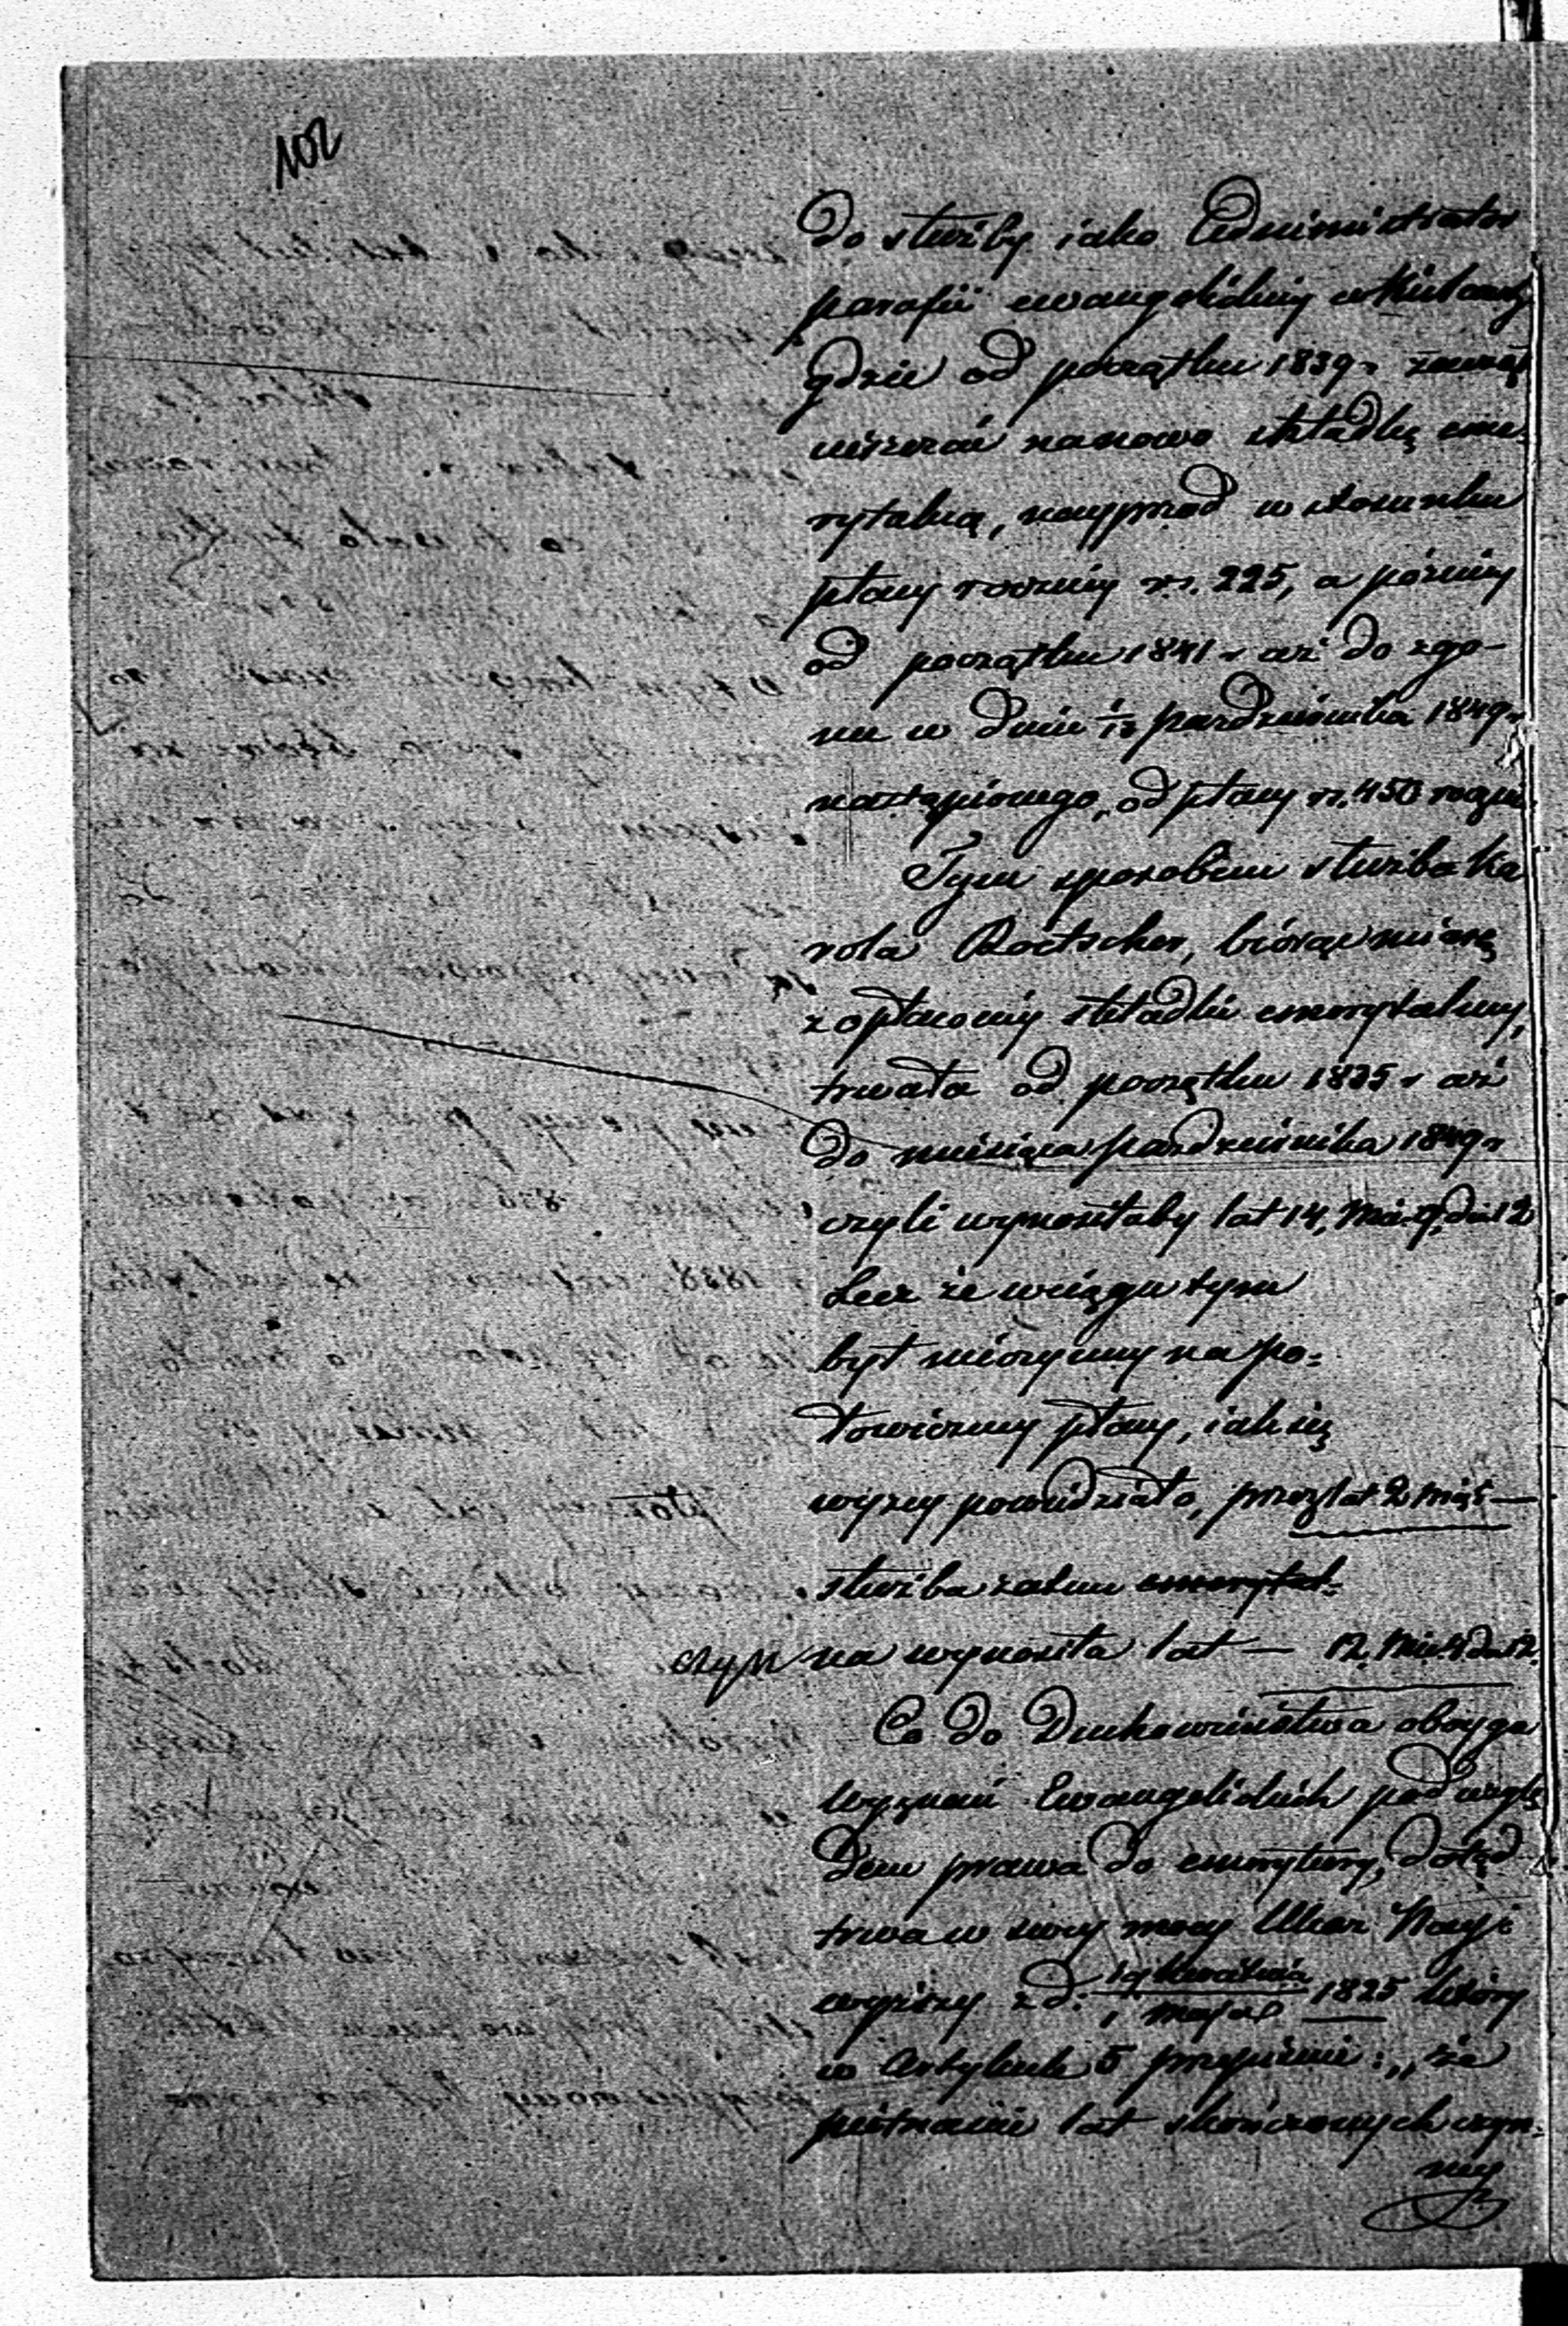 102
do służby iako Administrator
parafii ewangelickiej w Kielcach
gdzie od początku 1839 r zaczął
uiszczać nanowo składkę eme-
rytalną, nayprzod w stosunku
płacy roczney rs. 225, a pózniey
od początku 1841 r aż do zgo-
nu w dniu 1/13 pazdziernika 1849 r
nastąpionego, od płacy rs. 450 roczn.
Tym sposobem służba Ka
rola Roetscher, biorąc miarę
z opłaconey składki emerytalney,
trwała od początku 1835 r aż
do miesiąca pazdziernika 1849 r
czyli wynosiłaby lat 14, Mie. 9, dni 12
Lecz że wciągu tym
był nieczynny na po-
łowiczney płacy, iak się
wyzey powiedziało, przez lat 2 mies 5 —
służba zatem emerytal-
czyn na wynosiła lat — 12. Mie. 4 dni 12.
Co do Duchowieństwa oboyga
wyznań Ewangelickich pod wzglę
dem prawa do emerytury, dotąd
trwa w swey mocy Ukaz Nayj
wyższy z d. 19 Kwietnia / 1 Maja 1825 który
w Artykule 5 przepisuie: „że
piętnaście lat skończonych czyn-
ney